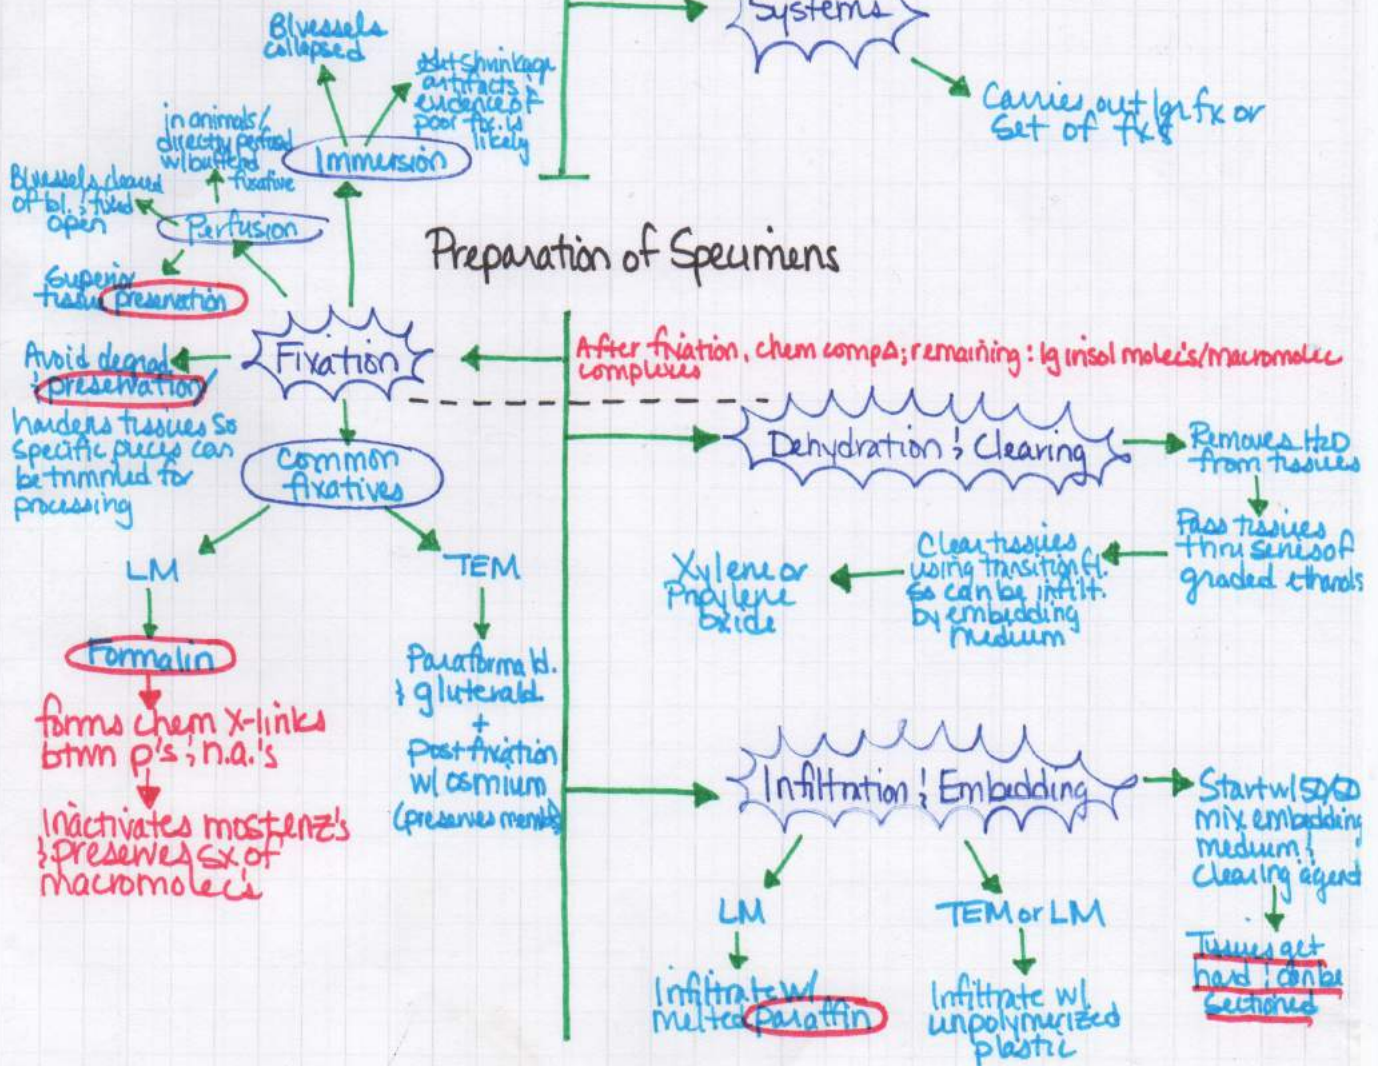 Systems
Carries out 1gr fx or
set of fx's
Bl vessels
collapsed
shrinkage
artifacts &
evidence of
poor fix. is
likely
in animals/
directly perfused
w/ buffered
fixative
Immersion
Bl vessels cleared
of bl. & fixed
open
Perfusion
Superior
tissue preservation
Preparation of Specimens
Fixation
Avoid degrad
& preservation/
hardens tissues so
specific pieces can
be trimmed for
processing
After fixation, chem comps Δ; remaining: lg insol molec's/macromolec
complexes
Common
fixatives
LM
Formalin
forms chem X-links
btwn p's & n.a.'s
Inactivates most enz's
& preserves sx of
macromolec's
TEM
Paraformald.
& gluterald.
+
Post fixation
w/ osmium
(preserves memb's
Dehydration & Clearing
Removes H2O
from tissues
Pass tissues
thru series of
graded ethanols
Clear tissues
using transition fl.
so can be infilt.
by embedding
medium
Xylene or
Propylene
Oxide
Infiltration & Embedding
Start w/ 50/50
mix embedding
medium &
clearing agent
Tissues get
hard & can be
sectioned
LM
Infiltrate w/
melted paraffin
TEM or LM
Infiltrate w/
unpolymerized
plastic